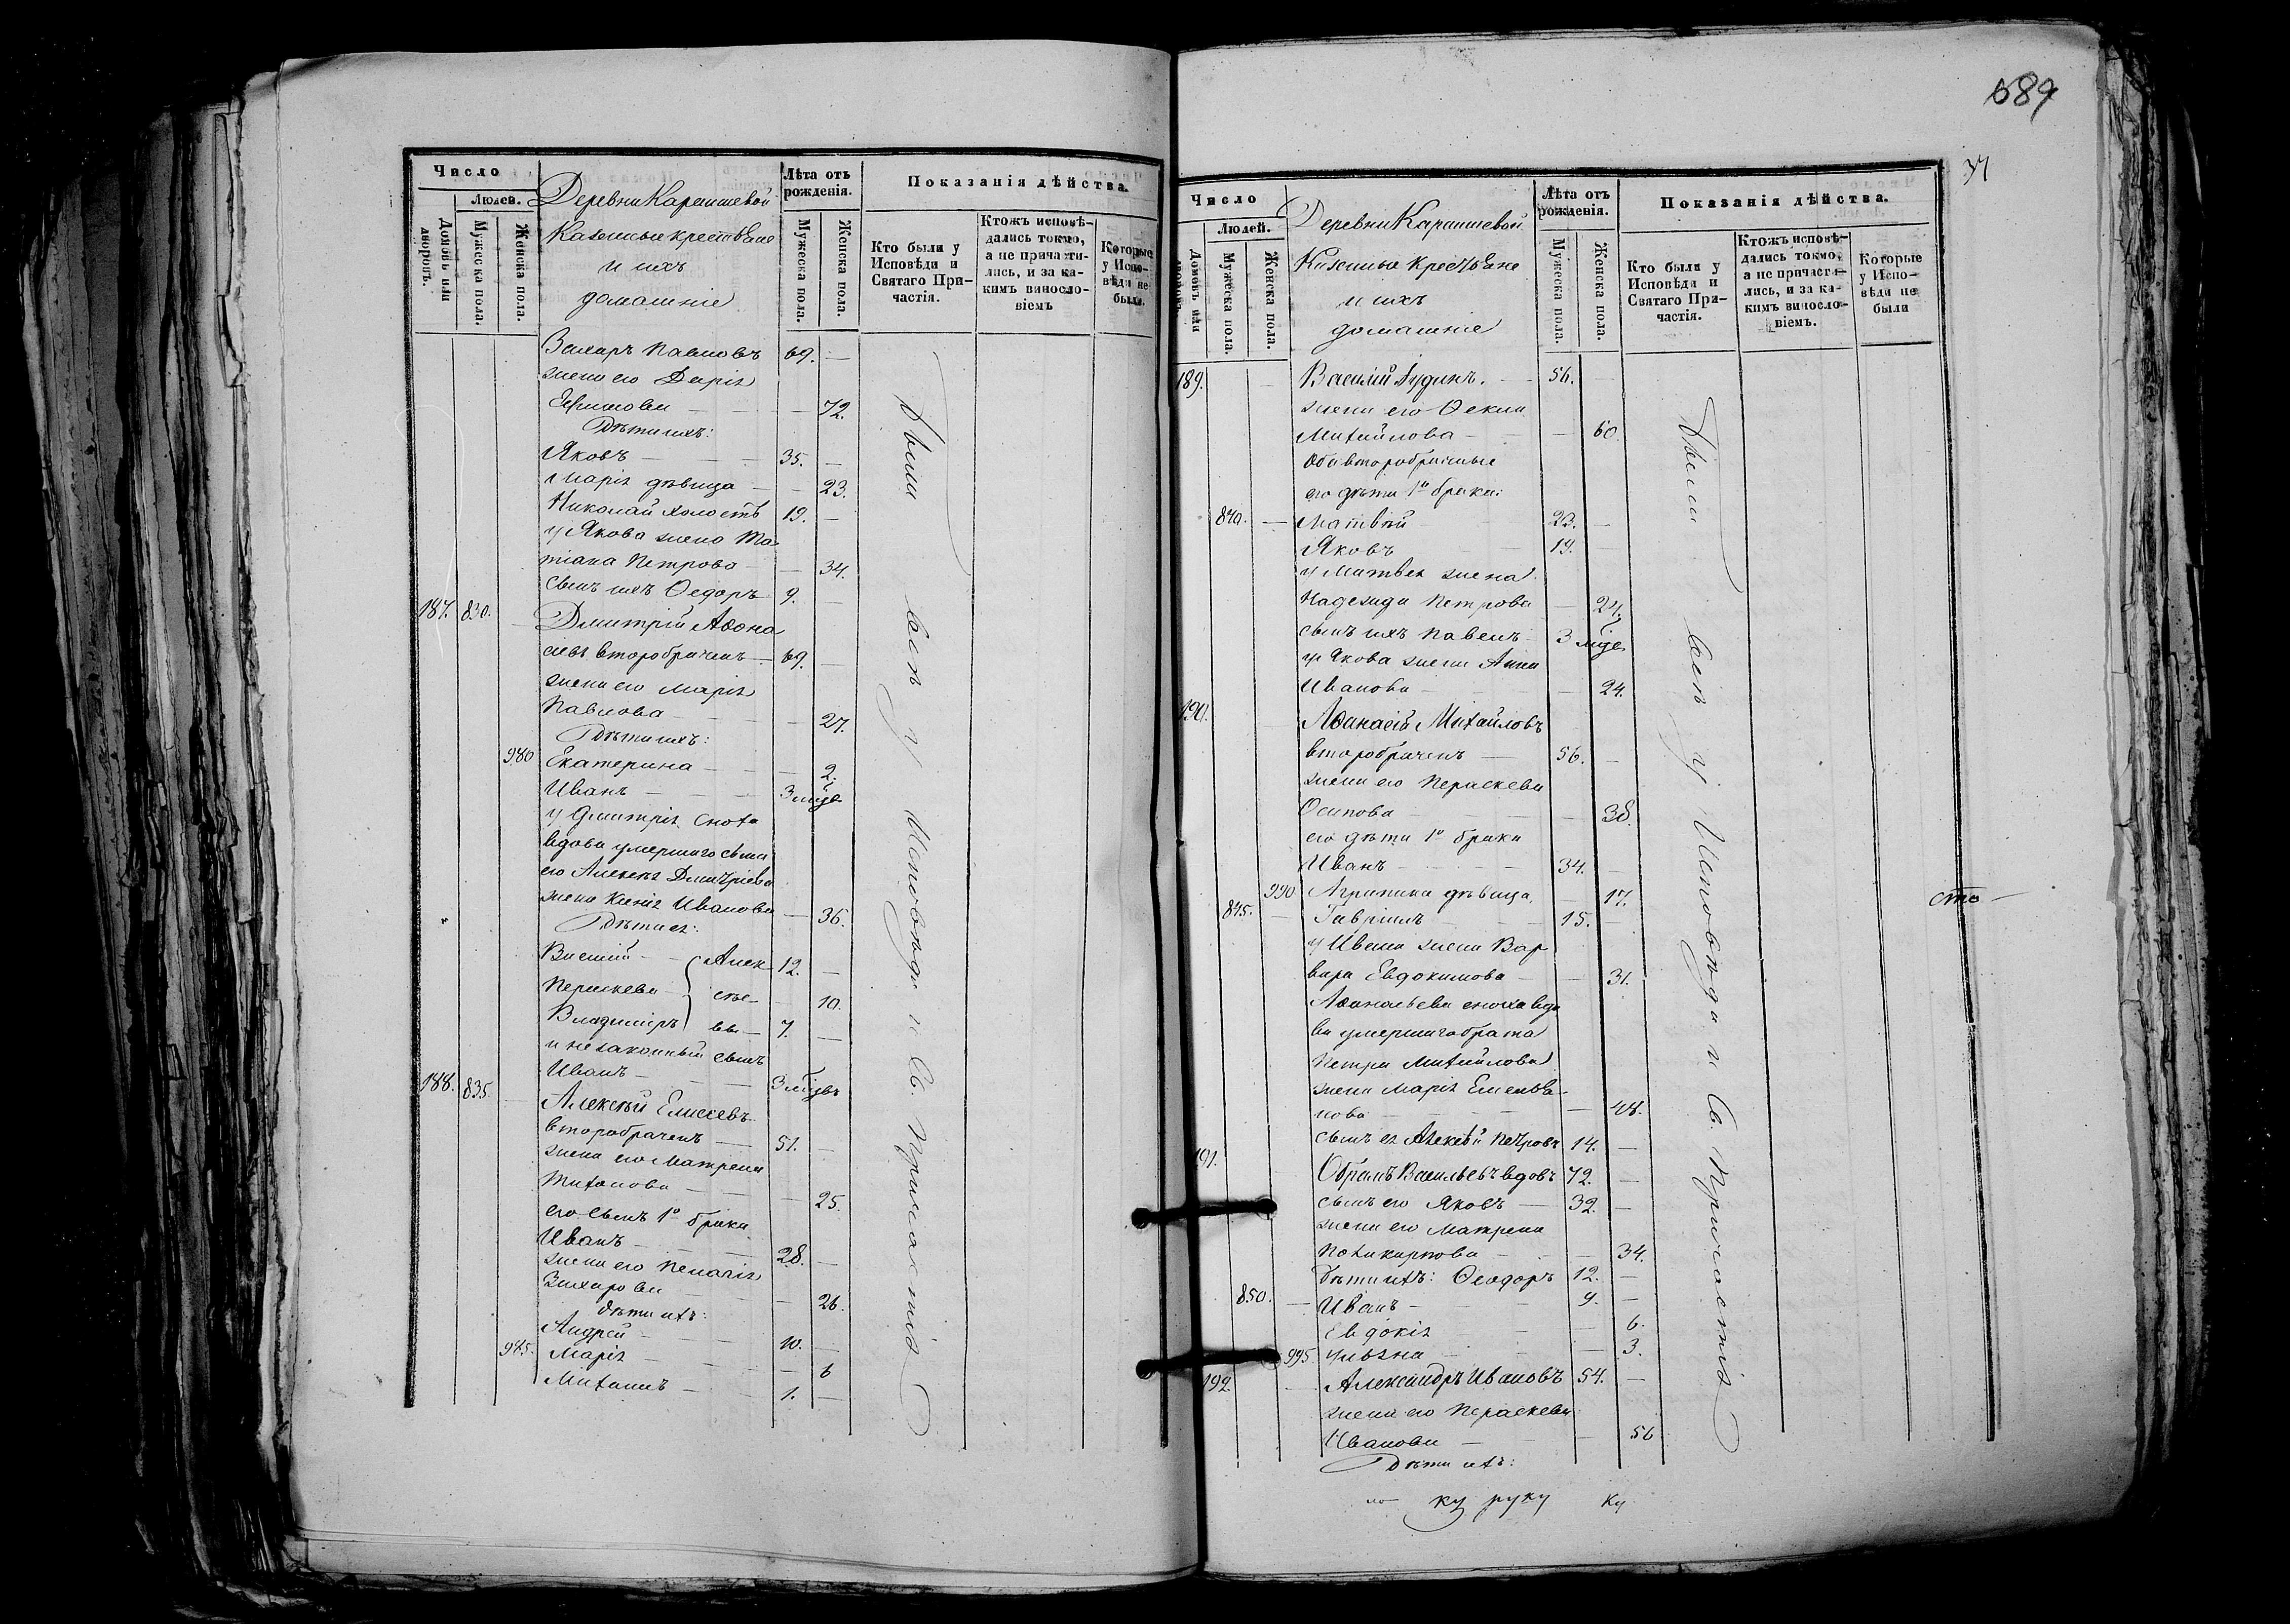 Число
Людей.
Домовъ или дворовъ.
Мужеска пола.
Женска пола.
Деревни Карашевой
Казенные крестьяне
и ихъ
домашніе
Лѣта отъ рожденія.
Мужеска пола.
Женска пола.
Показанія дѣйства.
Кто были у Исповѣди и Святаго Причастія.
Ктожъ исповѣдались токмо, а не причастились, и за какимъ винословіемъ
Которые у Исповѣди не были.
Захаръ Павловъ 69. —
жена его Дарія
Ефимова — 72.
Дѣти ихъ:
Яковъ — 35. —
Марія дѣвица — 23.
Николай холостъ 19. —
у Якова жена Та
тіана Петрова — 34.
сынъ ихъ Ѳедоръ 9. —
187. 830. — Дмитрій Аѳона
сіевъ второбраченъ — 69. —
жена его Марія
Павлова — 27.
Дѣти ихъ:
980 Екатерина — 2.
Иванъ — 3 мцѣ
у Дмитрія сноха
вдова умершаго сына
его Алексѣя Дмитріева
жена Ксенія Иванова — 36.
Дѣти ея:
Василій — Алек 12. —
Параскева — сѣе — 10.
Владиміръ вы — 7. —
и незаконный сынъ
Иванъ — 3 мѣцъ
188. 835. — Алексѣй Елисеевъ
второбраченъ — 51. —
жена его Матрена
Тихонова — 25.
его сынъ 1º брака
Иванъ — 28. —
жена его Пелагія
Захарова — 26.
Дѣти ихъ:
Андрей — 10. —
985. Марія — 6
Михаилъ — 1. —
Были всѣ у Исповѣди и Св. Причастія
689
37
Число
Людей.
Домовъ или дворовъ.
Мужеска пола.
Женска пола.
Деревни Карашевой
Казенные крестьяне
и ихъ
домашніе
Лѣта отъ рожденія.
Мужеска пола.
Женска пола.
Показанія дѣйства.
Кто были у Исповѣди и Святаго Причастія.
Ктожъ исповѣдались токмо, а не причастились, и за какимъ винословіемъ.
Которые у Исповѣди не были
189. — Василій Аудинъ. — 56. —
жена его Ѳекла
Михайлова — 60.
Оба второбрачные
его дѣти 1º брака:
840. — Матвѣй — 23. —
Яковъ — 19. —
у Матвея жена
Надежда Петрова — 24.
сынъ ихъ Павелъ — 3 мцѣ
у Якова жена Анна
Иванова — 24.
190. Аѳанасій Михайловъ
второбраченъ — 56. —
жена его Параскева
Осипова — 38.
его дѣти 1º брака
Иванъ — 34. —
990 Агрипина дѣвица — 17.
845. — Гавріилъ — 15. —
у Ивана жена Вар
вара Евдокимова — 31.
Аѳанасьева сноха вдо
ва умершаго брата
Петра Михайлова
жена Марія Емелья
нова — 48.
сынъ ея Алексѣй Петровъ 14. —
191. Абрамъ Васильевъ вдовъ 72. —
сынъ его Яковъ — 32. —
жена его Матрена
Поликарпова — 34.
Дѣти ихъ: Ѳеодоръ 12. —
850. — Иванъ — 9. —
Евдокія — 6.
995 Ульяна — 3.
192. — Александръ Ивановъ 54. —
жена его Параскева
Иванова — 56
Дѣти ихъ:
Были всѣ у Исповѣди и Св. Причастія
сто
ку руку ку